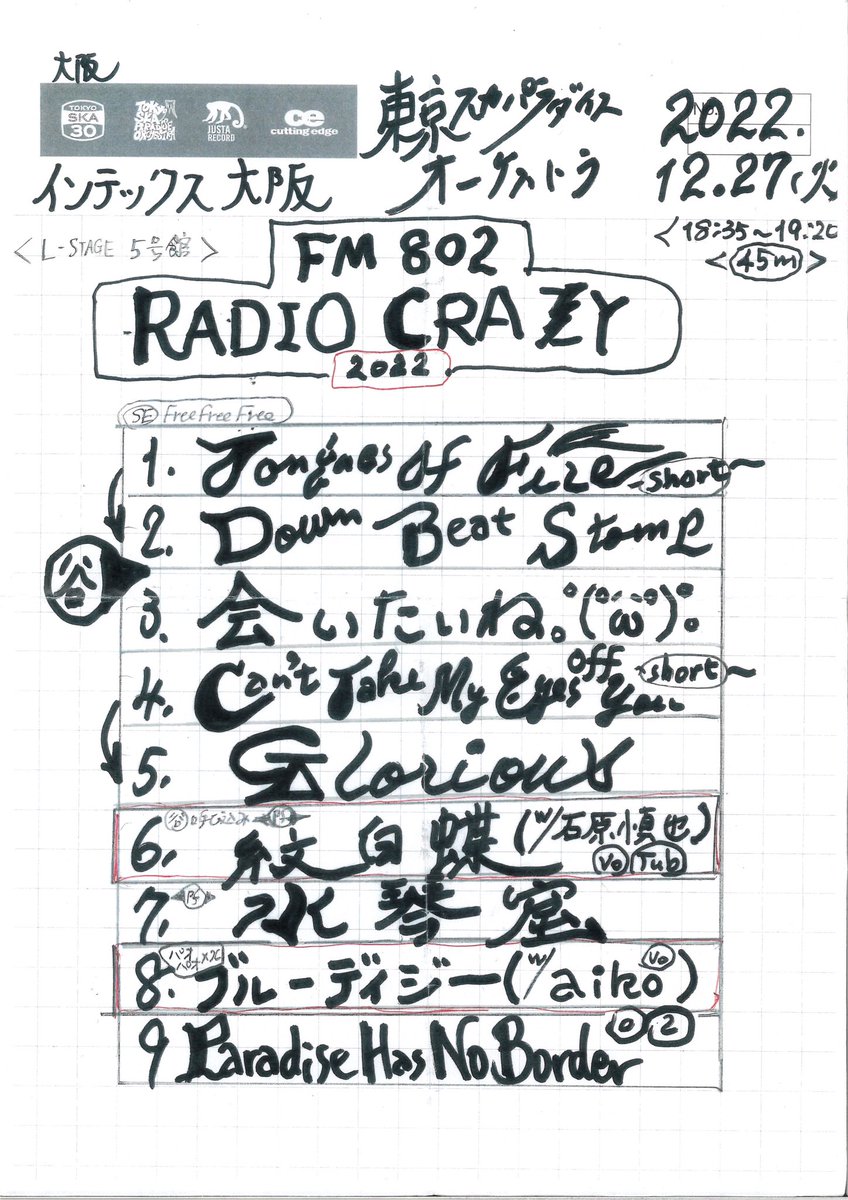 大阪
TOKYO SKA 30
TOKYO SKA PARADISE ORCHESTRA
JUSTA RECORD
cutting edge
東京スカパラダイス
オーケストラ
2022.
12.27(火
インテックス大阪
<18:35~19:20
<45m>
<L-STAGE 5号館>
FM 802
RADIO CRAZY
2022
SE FreeFreeFree
1. Tongues Of Fire ~short~
2. Down Beat Stomp
谷
3. 会いたいね。゚(゚´ω`゚)゚。
4. Can't Take My Eyes Off You short~
5. Glorious
谷呼び込み
6. 紋白蝶(w/石原慎也)
Vo Tub
7. 水琴窟
パオパオ××
8. ブルーデイジー(w/aiko)
Vo
9 Paradise Has No Border
0 2